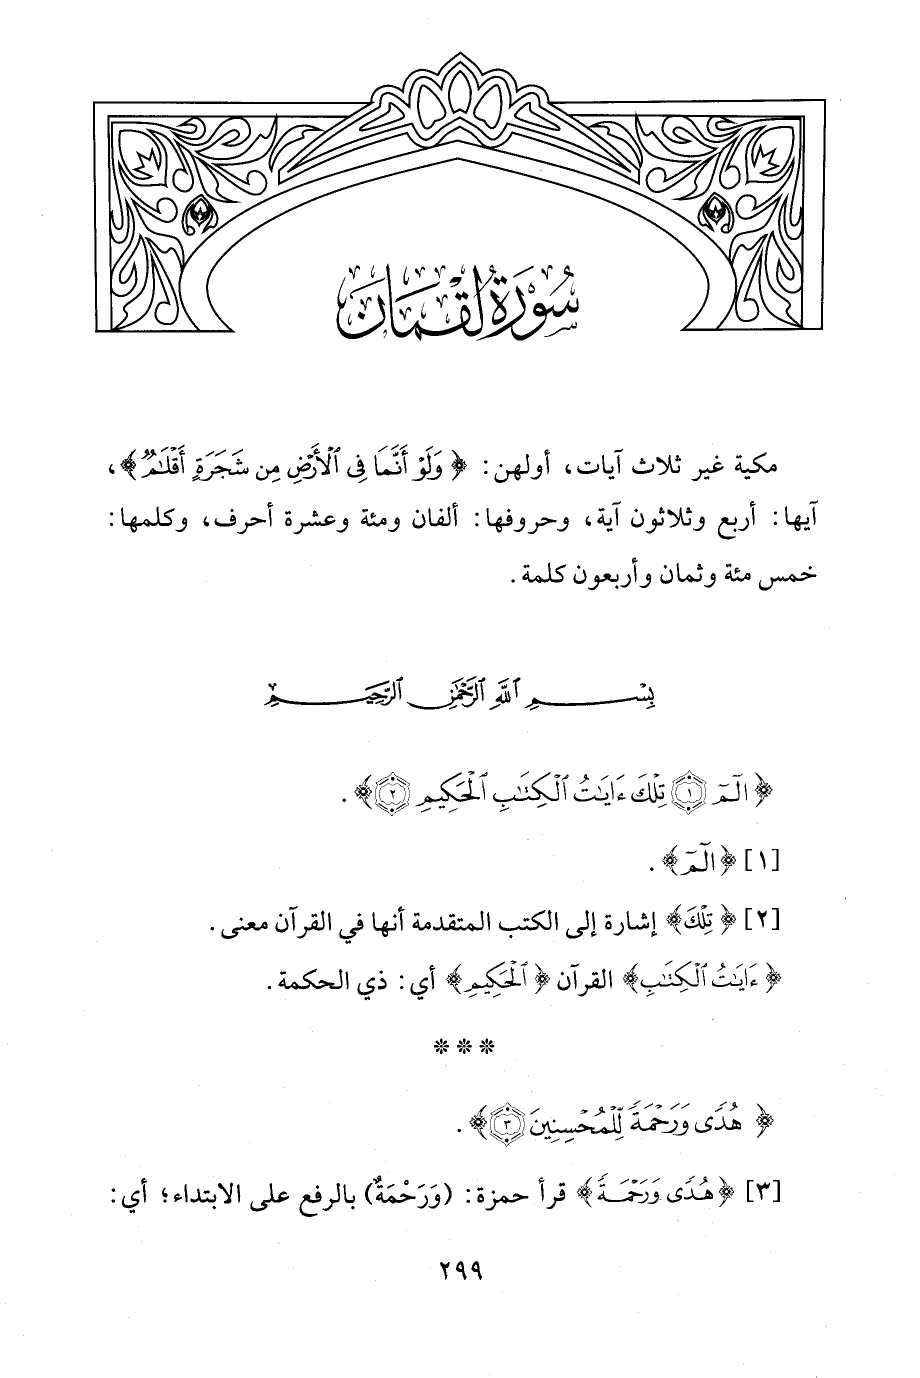 سُورَةُ لُقْمَان
مكية غير ثلاث آيات، أولهن: ﴿وَلَوْ أَنَّمَا فِى ٱلْأَرْضِ مِن شَجَرَةٍ أَقْلَٰمٌ﴾،
آيها: أربع وثلاثون آية، وحروفها: ألفان ومئة وعشرة أحرف، وكلمها:
خمس مئة وثمان وأربعون كلمة.
بِسْمِ ٱللَّهِ ٱلرَّحْمَٰنِ ٱلرَّحِيمِ
﴿الٓمٓ ١ تِلْكَ ءَايَٰتُ ٱلْكِتَٰبِ ٱلْحَكِيمِ ٢﴾.
[١] ﴿الٓمٓ﴾.
[٢] ﴿تِلْكَ﴾ إشارة إلى الكتب المتقدمة أنها في القرآن معنى.
﴿ءَايَٰتُ ٱلْكِتَٰبِ﴾ القرآن ﴿ٱلْحَكِيمِ﴾ أي: ذي الحكمة.
* * *
﴿هُدًى وَرَحْمَةً لِّلْمُحْسِنِينَ ٣﴾.
[٣] ﴿هُدًى وَرَحْمَةً﴾ قرأ حمزة: (وَرَحْمَةٌ) بالرفع على الابتداء؛ أي:
٢٩٩